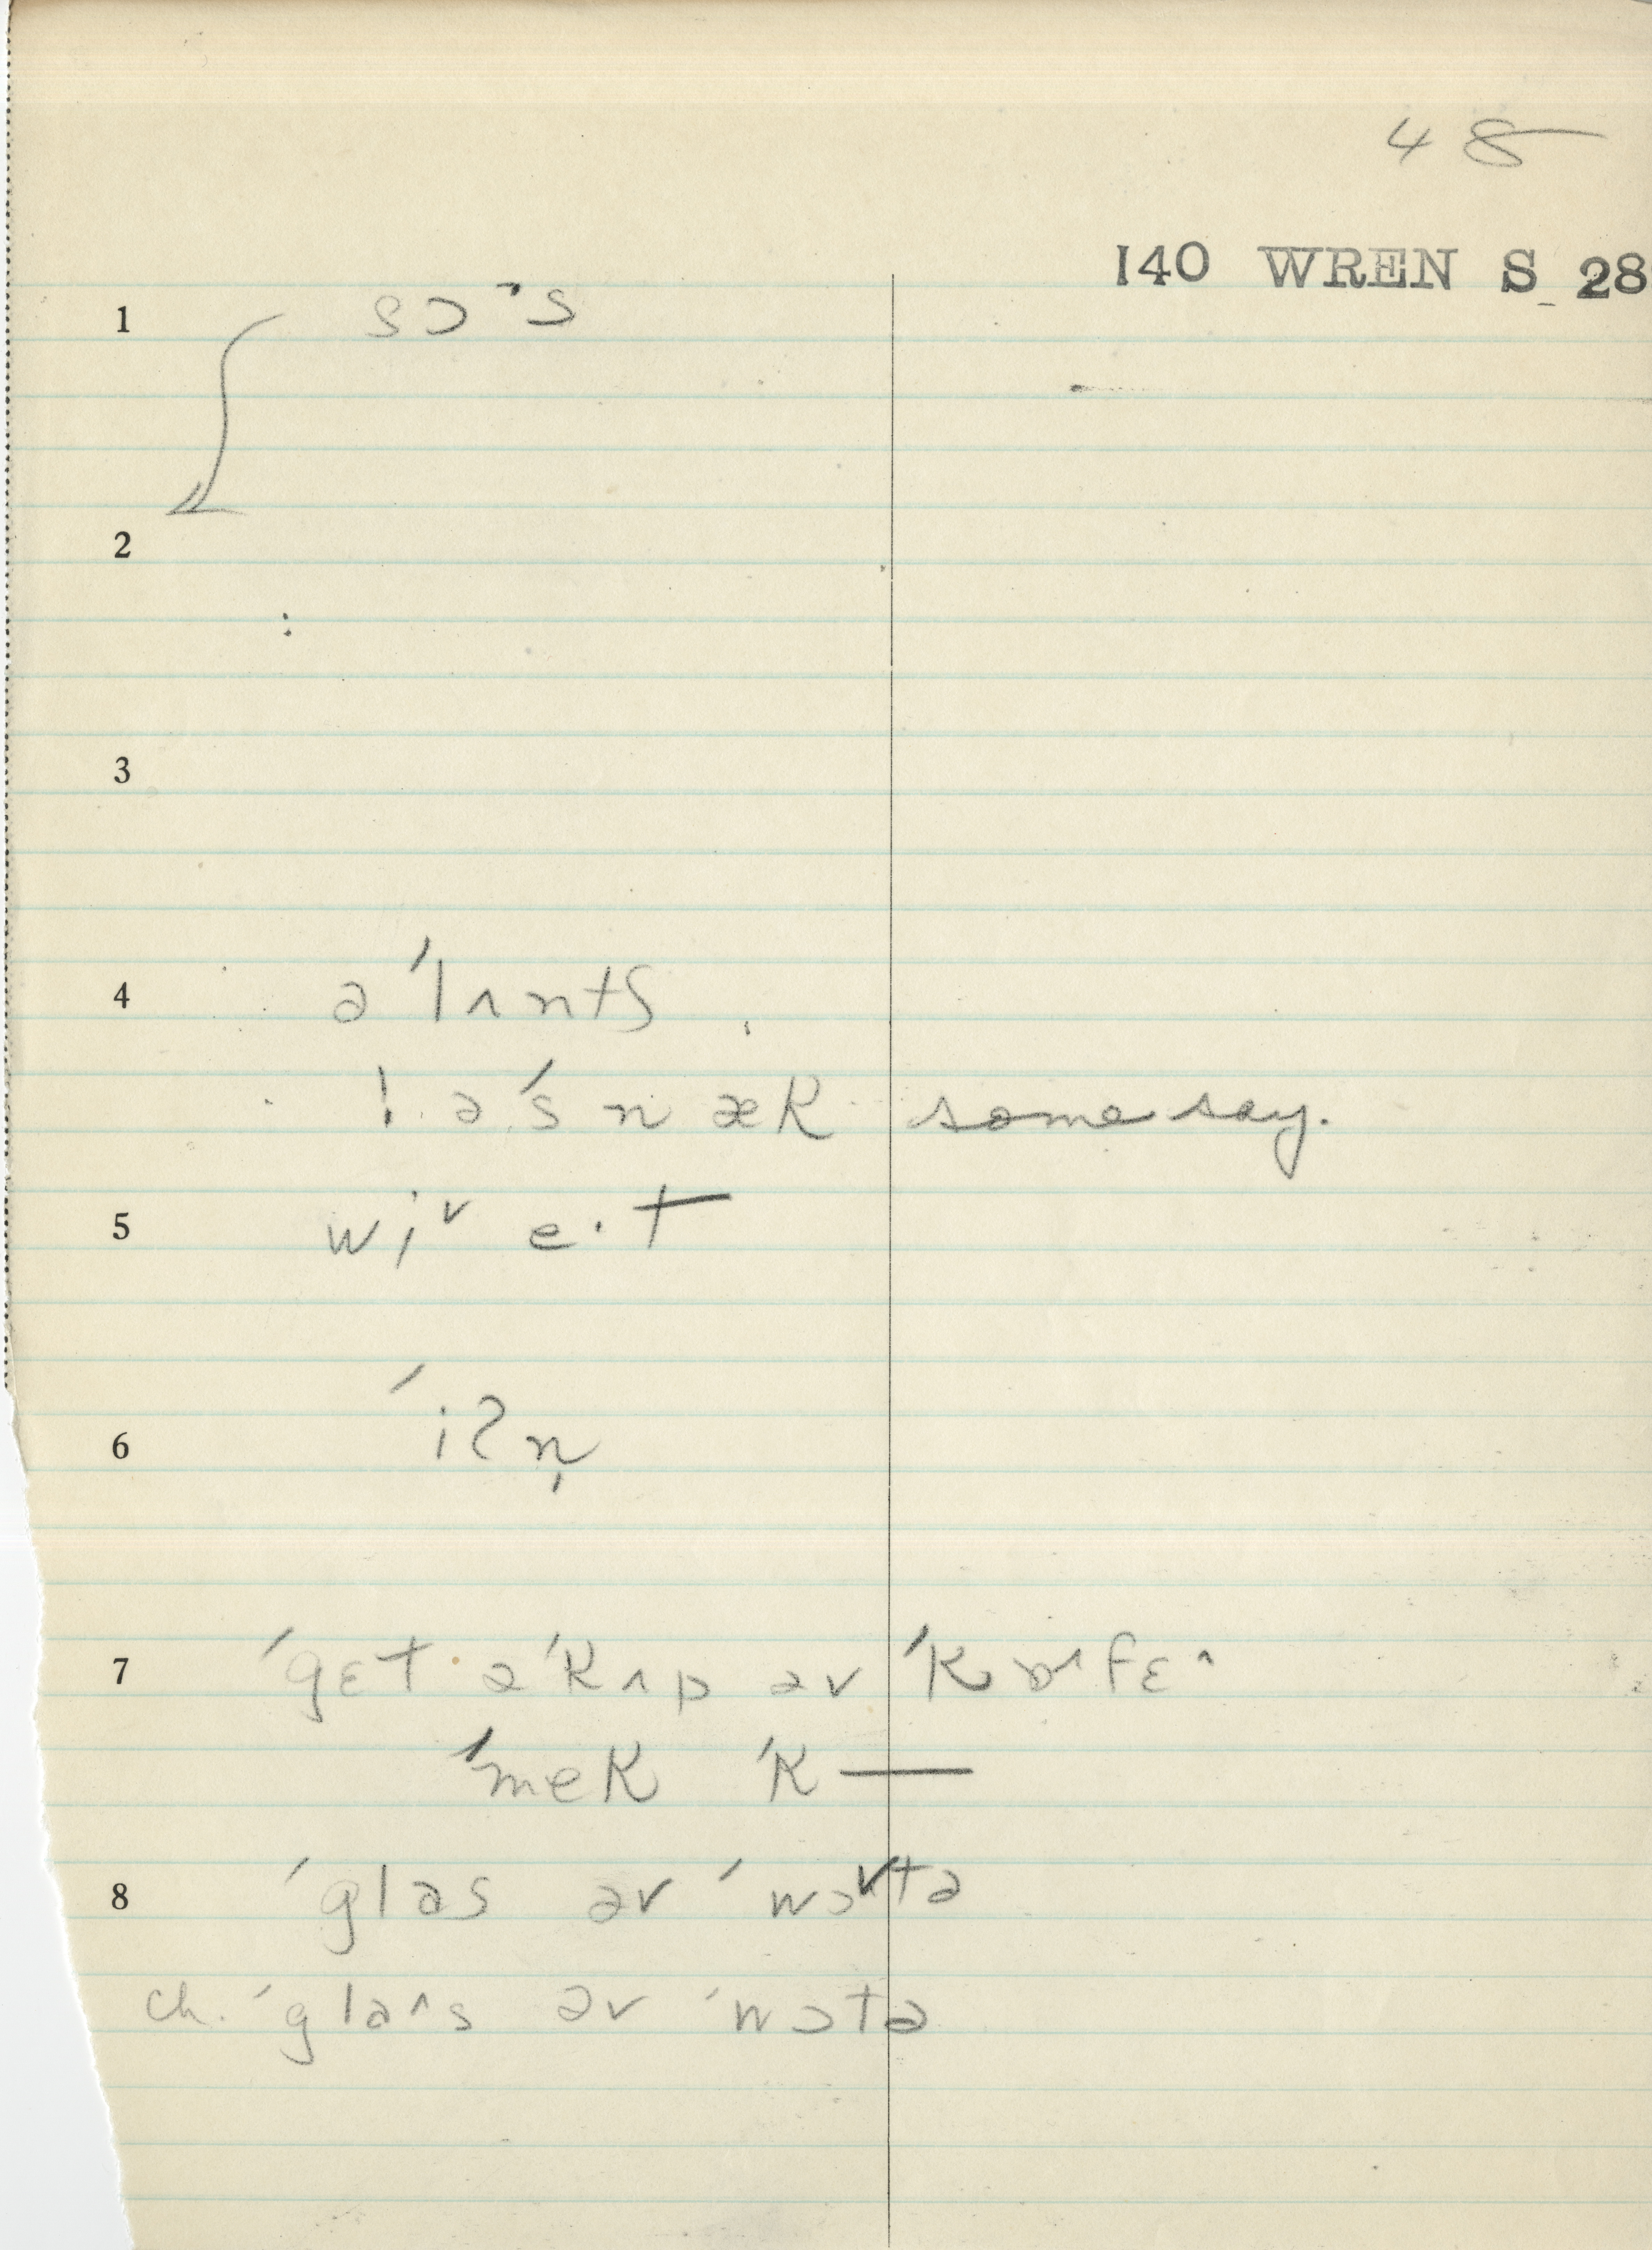 48
140 WREN S 28
1 sɔ˺s
2
3
4 ə ˈlʌntʃ
! ə ˈsnæk some say.
5 wi˅ e·t
6 ˈiʔn̩
7 ˈgɛt ə ˈkʌp əv ˈkɒ˄fɛ˄
ˈmek ˈk—
8 ˈglas əv ˈwɔ˅tə
ch. ˈgla˄s əv ˈwɔtə